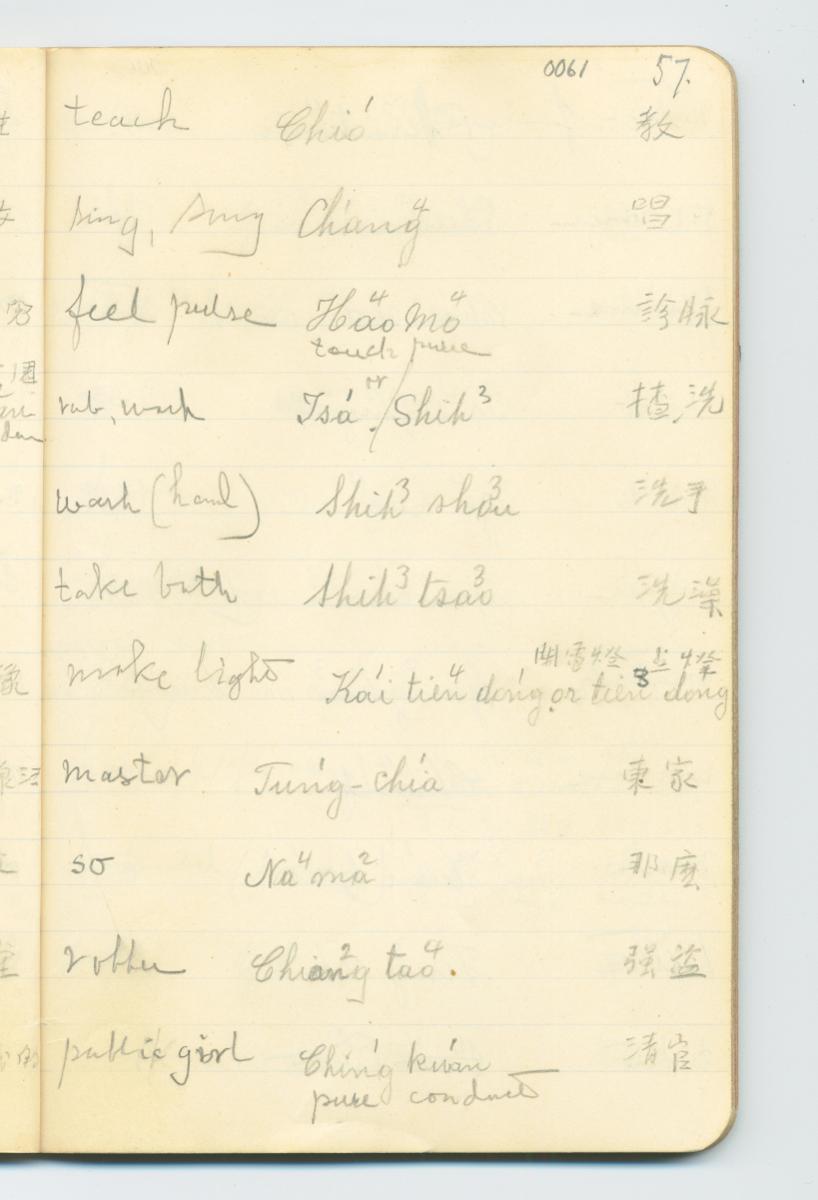 0061 57.
teach Chió 教
sing, song Chang⁴ 唱
feel pulse Hao⁴ mo⁴ 診脉
touch pulse
rub, wash Tsá or Shih³ 揸,洗
wash (hand) Shih³ shou³ 洗手
take bath Shih³ tsao³ 洗澡
開電燈 点燈
make light Kái tien⁴ dóng or tien³ dong
master Tung-chía 東家
so Na⁴ ma² 那麽
robber Chiang² tao⁴. 强盗
public girl Chíng kuán 清官
pure conduct